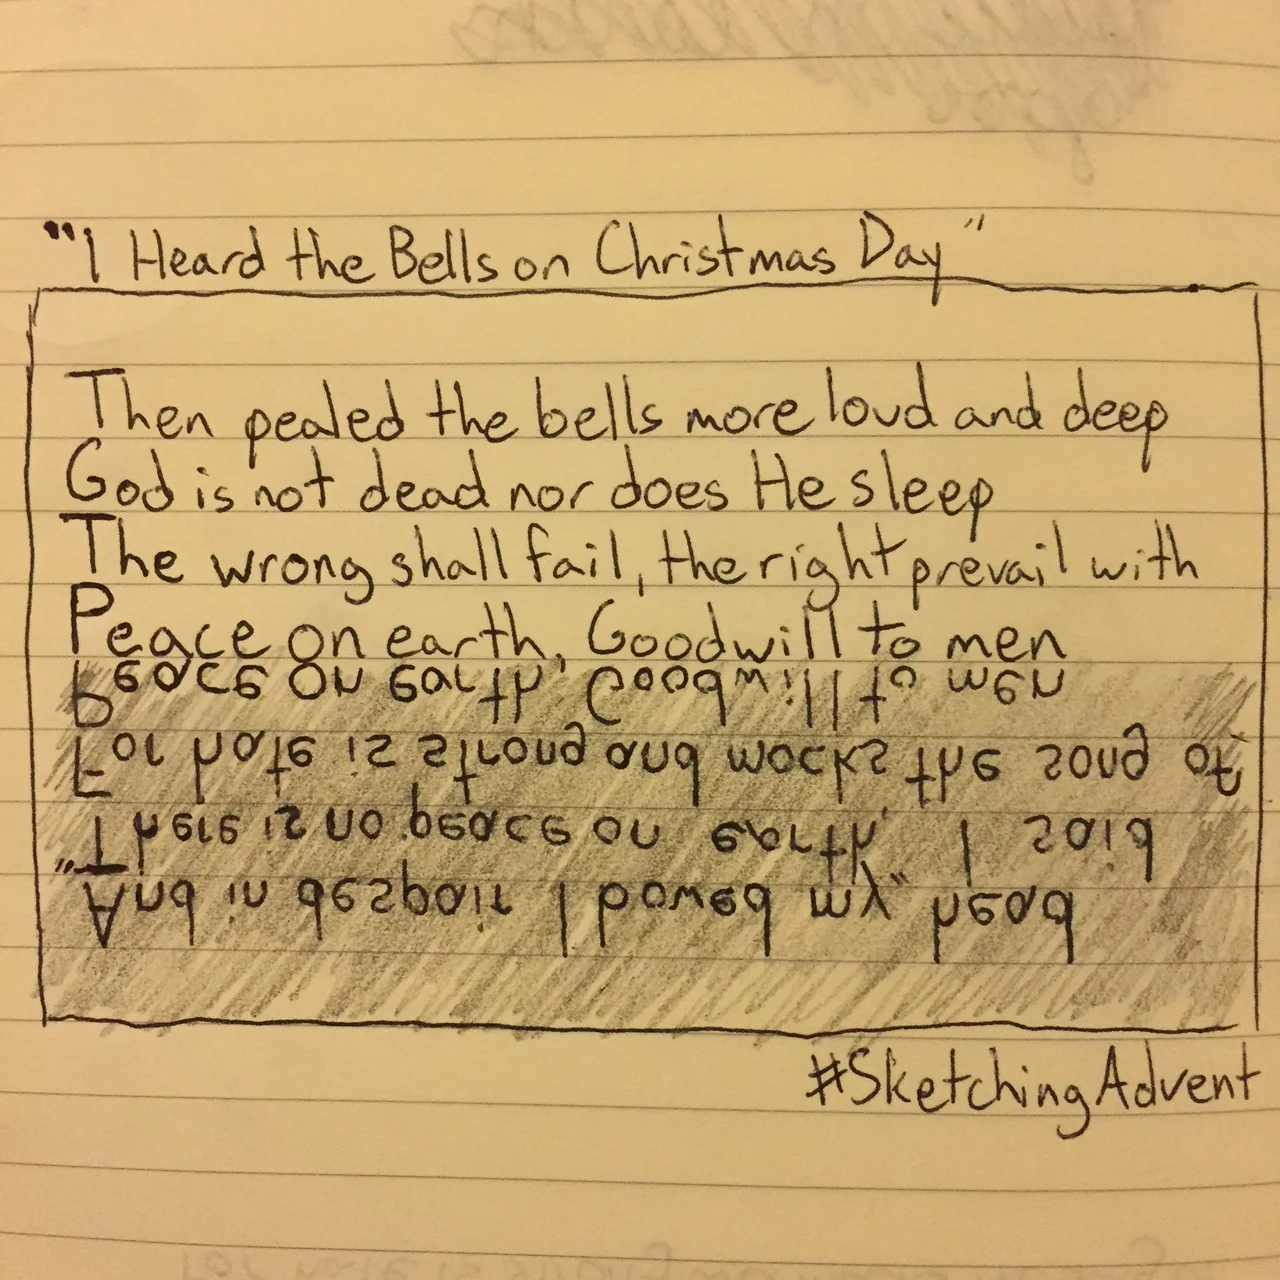 "I Heard the Bells on Christmas Day"
Then pealed the bells more loud and deep
God is not dead nor does He sleep
The wrong shall fail, the right prevail with
Peace on earth, Goodwill to men
Peace on earth, Goodwill to men
For hate is strong and mocks the song of
"There is no peace on earth," I said
And in despair I bowed my head
#SketchingAdvent